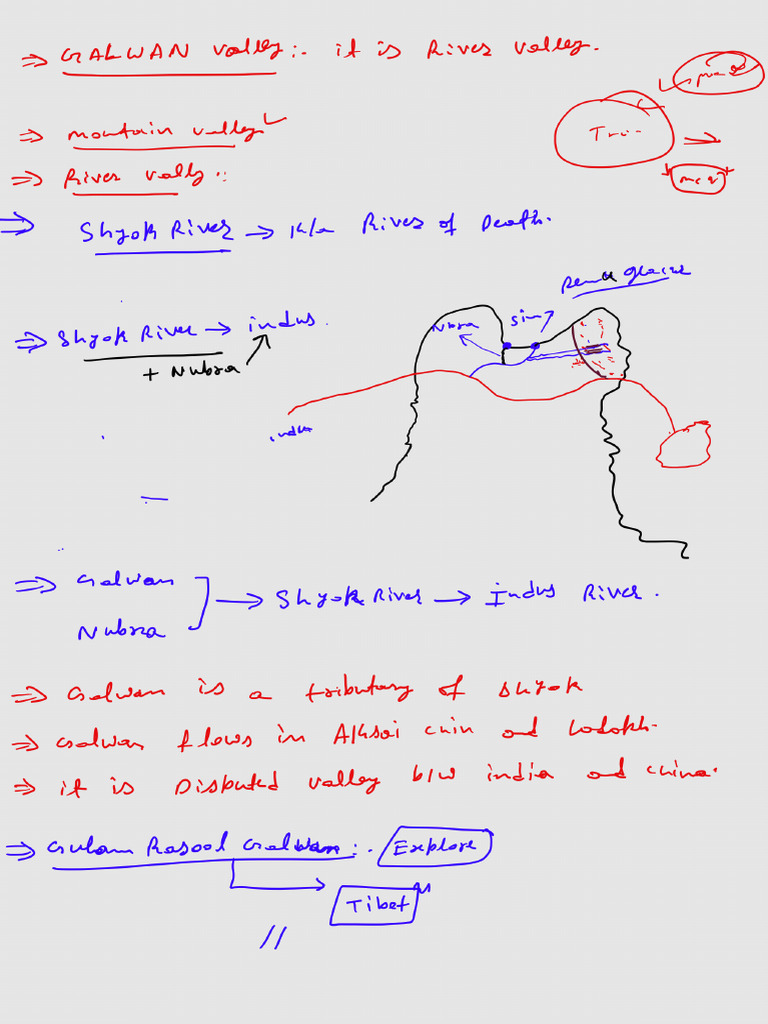 ⇒ GALWAN valley:- it is River valley.
⇒ mountain valley
Tr..
⇒ River vally:
mcq
⇒ Shyok River → K/a River of Death.
glacier
⇒ Shyok River → indus.
+ Nubra
Nubra
indus
⇒ Galwan
Nubra
→ Shyok River → Indus River.
⇒ Galwan is a tributary of Shyok
⇒ Galwan flows in Aksai chin and Ladakh.
⇒ it is Disputed valley b/w india and china.
⇒ Gulam Rasool Galwan:. Explore
Tibet
//